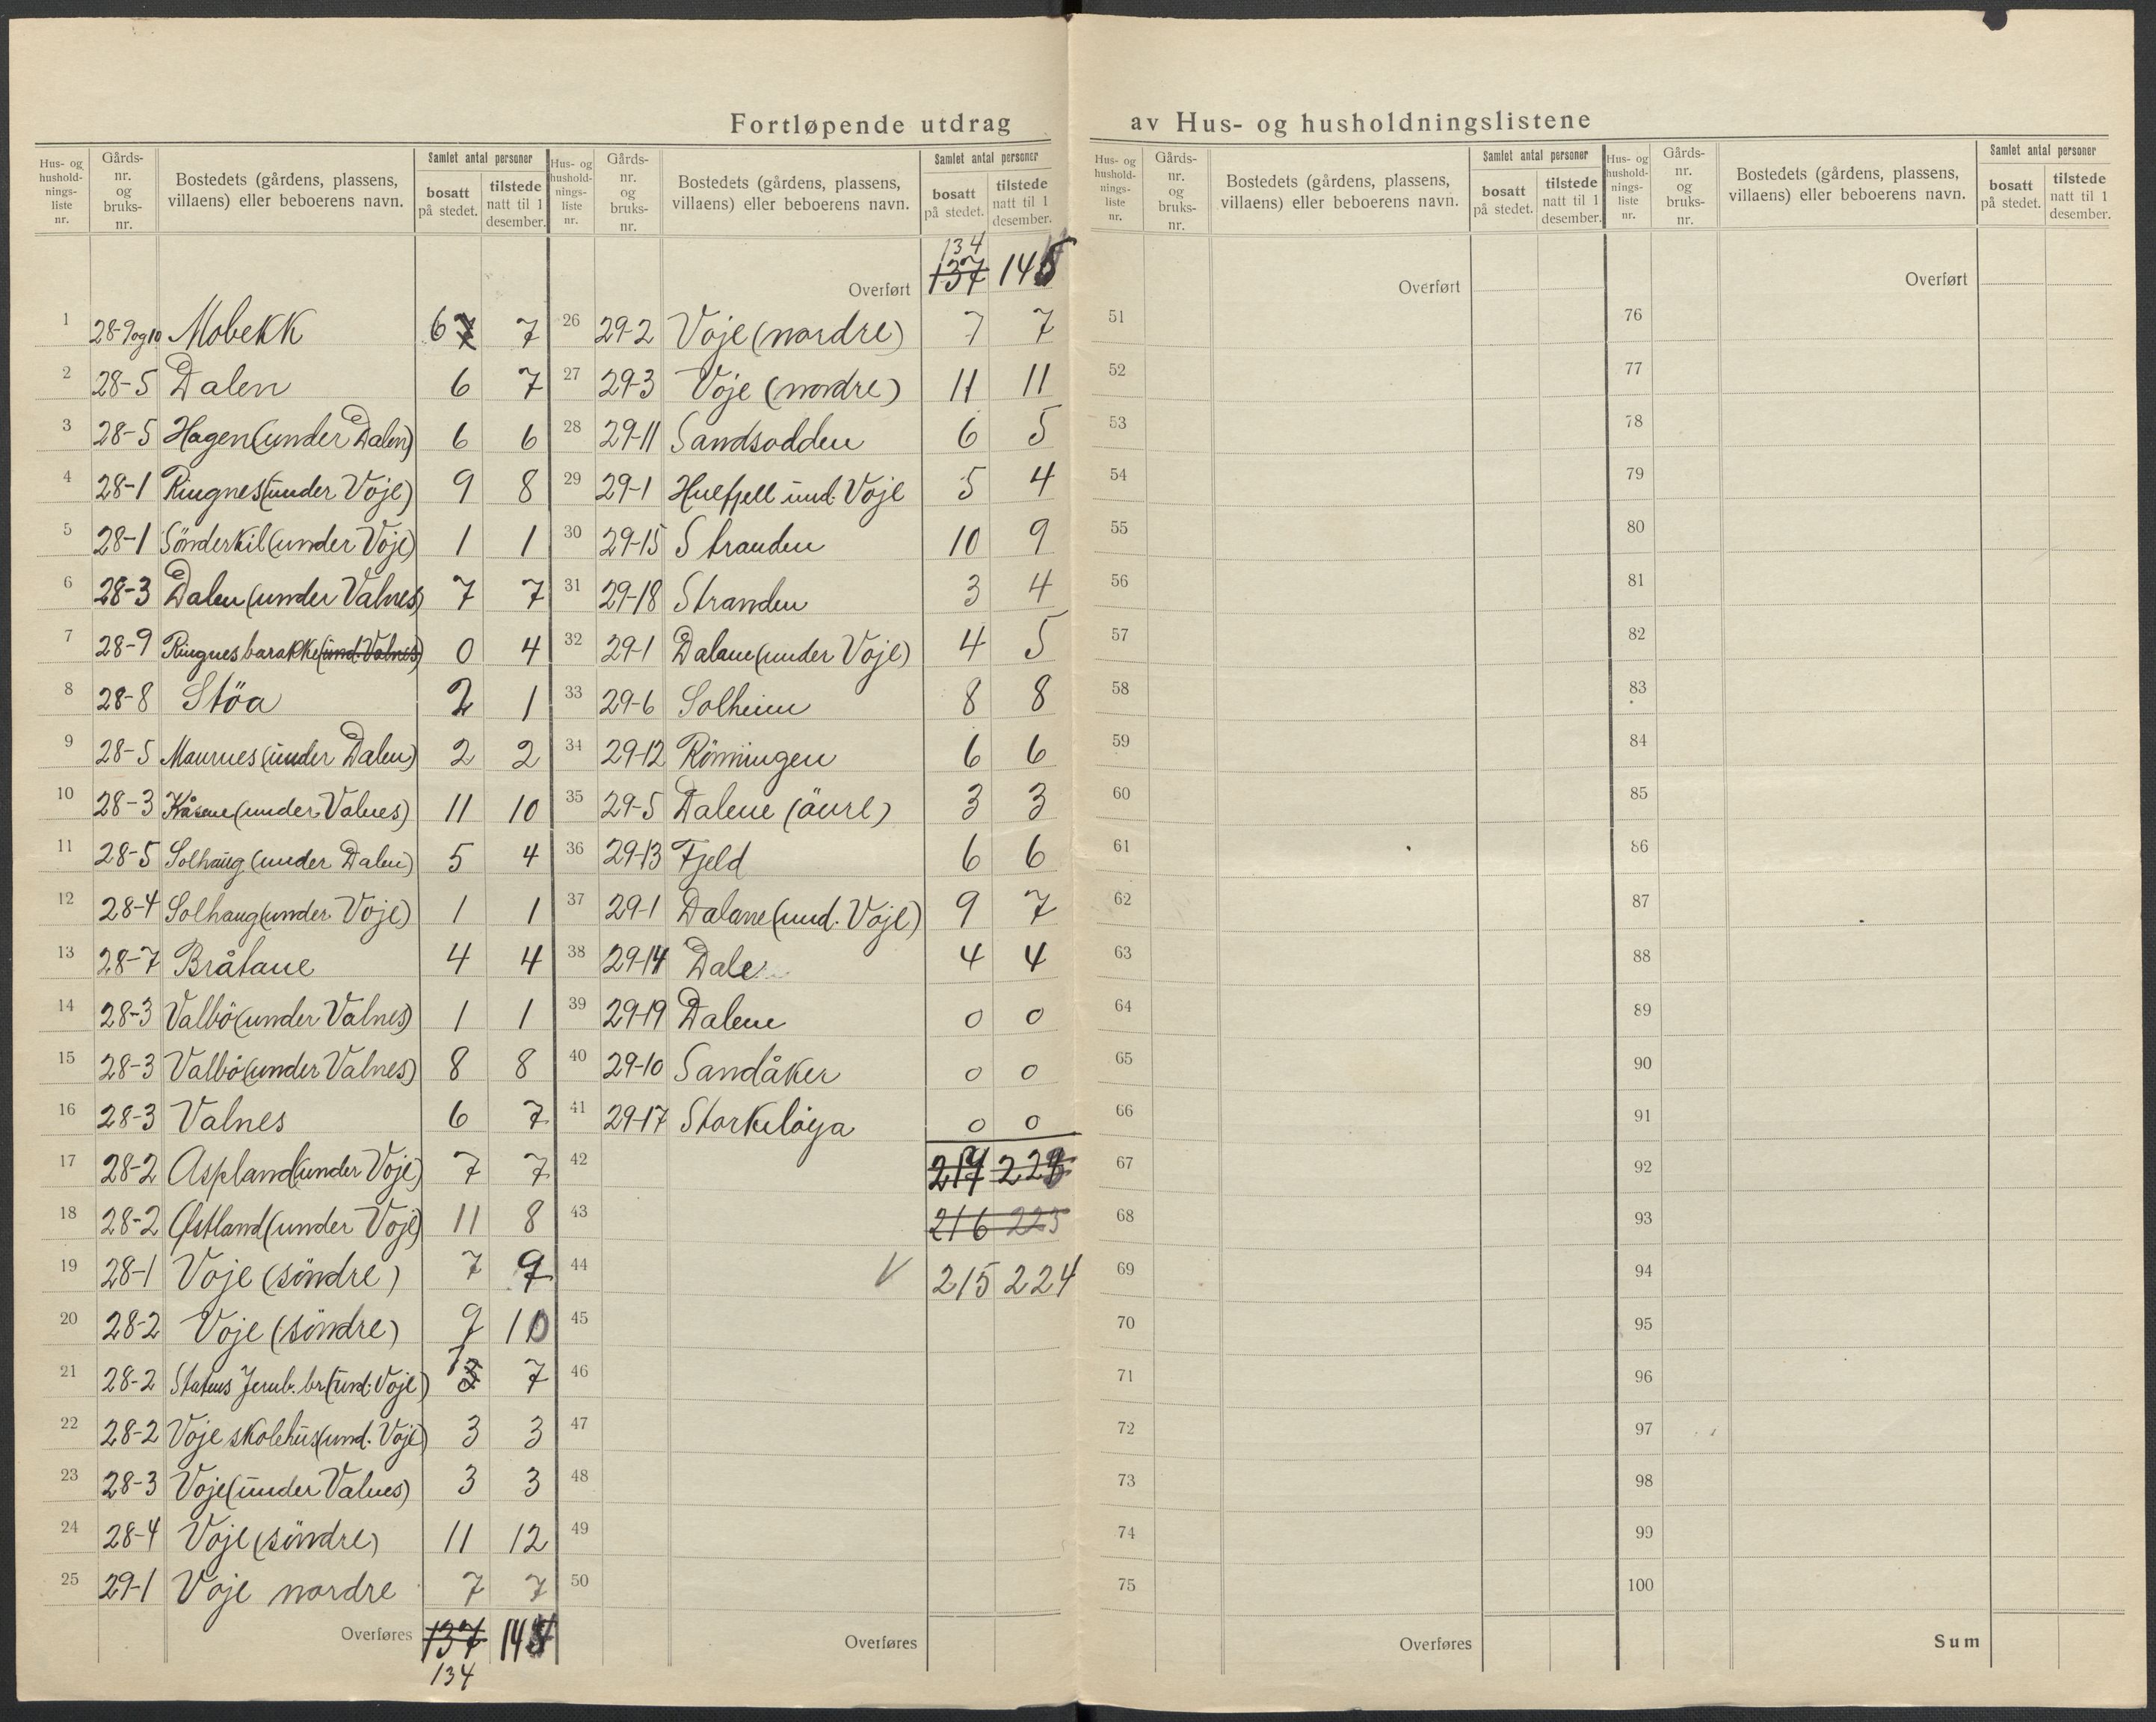 Fortløpende utdrag av Hus- og husholdningslistene
Hus- og husholdnings- liste nr. | Gårds- nr. og bruks- nr. | Bostedets (gårdens, plassens, villaens) eller beboerens navn. | Samlet antal personer | bosatt på stedet. | tilstede natt til 1 desember.
1 28-9og10 Mobekk 6 7 7
2 28-5 Dalen 6 7
3 28-5 Hagen (under Dalen) 6 6
4 28-1 Ringnes (under Voje) 9 8
5 28-1 Sönderkil (under Voje) 1 1
6 28-3 Dalen (under Valnes) 7 7
7 28-9 Ringnes barakke (und. Valnes) 0 4
8 28-8 Stöa 2 1
9 28-5 Maurnes (under Dalen) 2 2
10 28-3 Kåsene (under Valnes) 11 10
11 28-5 Solhaug (under Dalen) 5 4
12 28-4 Solhaug (under Voje) 1 1
13 28-7 Bråtane 4 4
14 28-3 Valbö (under Valnes) 1 1
15 28-3 Valbö (under Valnes) 8 8
16 28-3 Valnes 6 7
17 28-2 Aspland (under Voje) 7 7
18 28-2 Østland (under Voje) 11 8
19 28-1 Voje (söndre) 7 9
20 28-2 Voje (söndre) 9 10
21 28-2 Statens Jernb. br. (und. Voje) 7
22 28-2 Voje skolehus (und. Voje) 3 3
23 28-3 Voje (under Valnes) 3 3
24 28-4 Voje (söndre) 11 12
25 29-1 Voje nordre 7 7
Overføres 137
134
Hus- og husholdnings- liste nr. | Gårds- nr. og bruks- nr. | Bostedets (gårdens, plassens, villaens) eller beboerens navn. | Samlet antal personer | bosatt på stedet. | tilstede natt til 1 desember.
134
Overført 137 145
26 29-2 Voje (nordre) 7 7
27 29-3 Voje (nordre) 11 11
28 29-11 Sandsodden 6 5
29 29-1 und. Voje 5 4
30 29-15 Stranden 10 9
31 29-18 Stranden 3 4
32 29-1 Dalane (under Voje) 4 5
33 29-6 Solheim 8 8
34 29-12 Rönningen 6 6
35 29-5 Dalene (övre) 3 3
36 29-13 Fjeld 6 6
37 29-1 Dalane (und. Voje) 9 7
38 29-14 Dale 4 4
39 29-19 Dalene 0 0
40 29-10 Sandåker 0 0
41 29-17 0 0
42
43 216 225
44 V 215 224
45
46
47
48
49
50
Overføres
Hus- og husholdnings- liste nr. | Gårds- nr. og bruks- nr. | Bostedets (gårdens, plassens, villaens) eller beboerens navn. | Samlet antal personer | bosatt på stedet. | tilstede natt til 1 desember.
Overført
51
52
53
54
55
56
57
58
59
60
61
62
63
64
65
66
67
68
69
70
71
72
73
74
75
Overføres
Hus- og husholdnings- liste nr. | Gårds- nr. og bruks- nr. | Bostedets (gårdens, plassens, villaens) eller beboerens navn. | Samlet antal personer | bosatt på stedet. | tilstede natt til 1 desember.
Overført
76
77
78
79
80
81
82
83
84
85
86
87
88
89
90
91
92
93
94
95
96
97
98
99
100
Sum